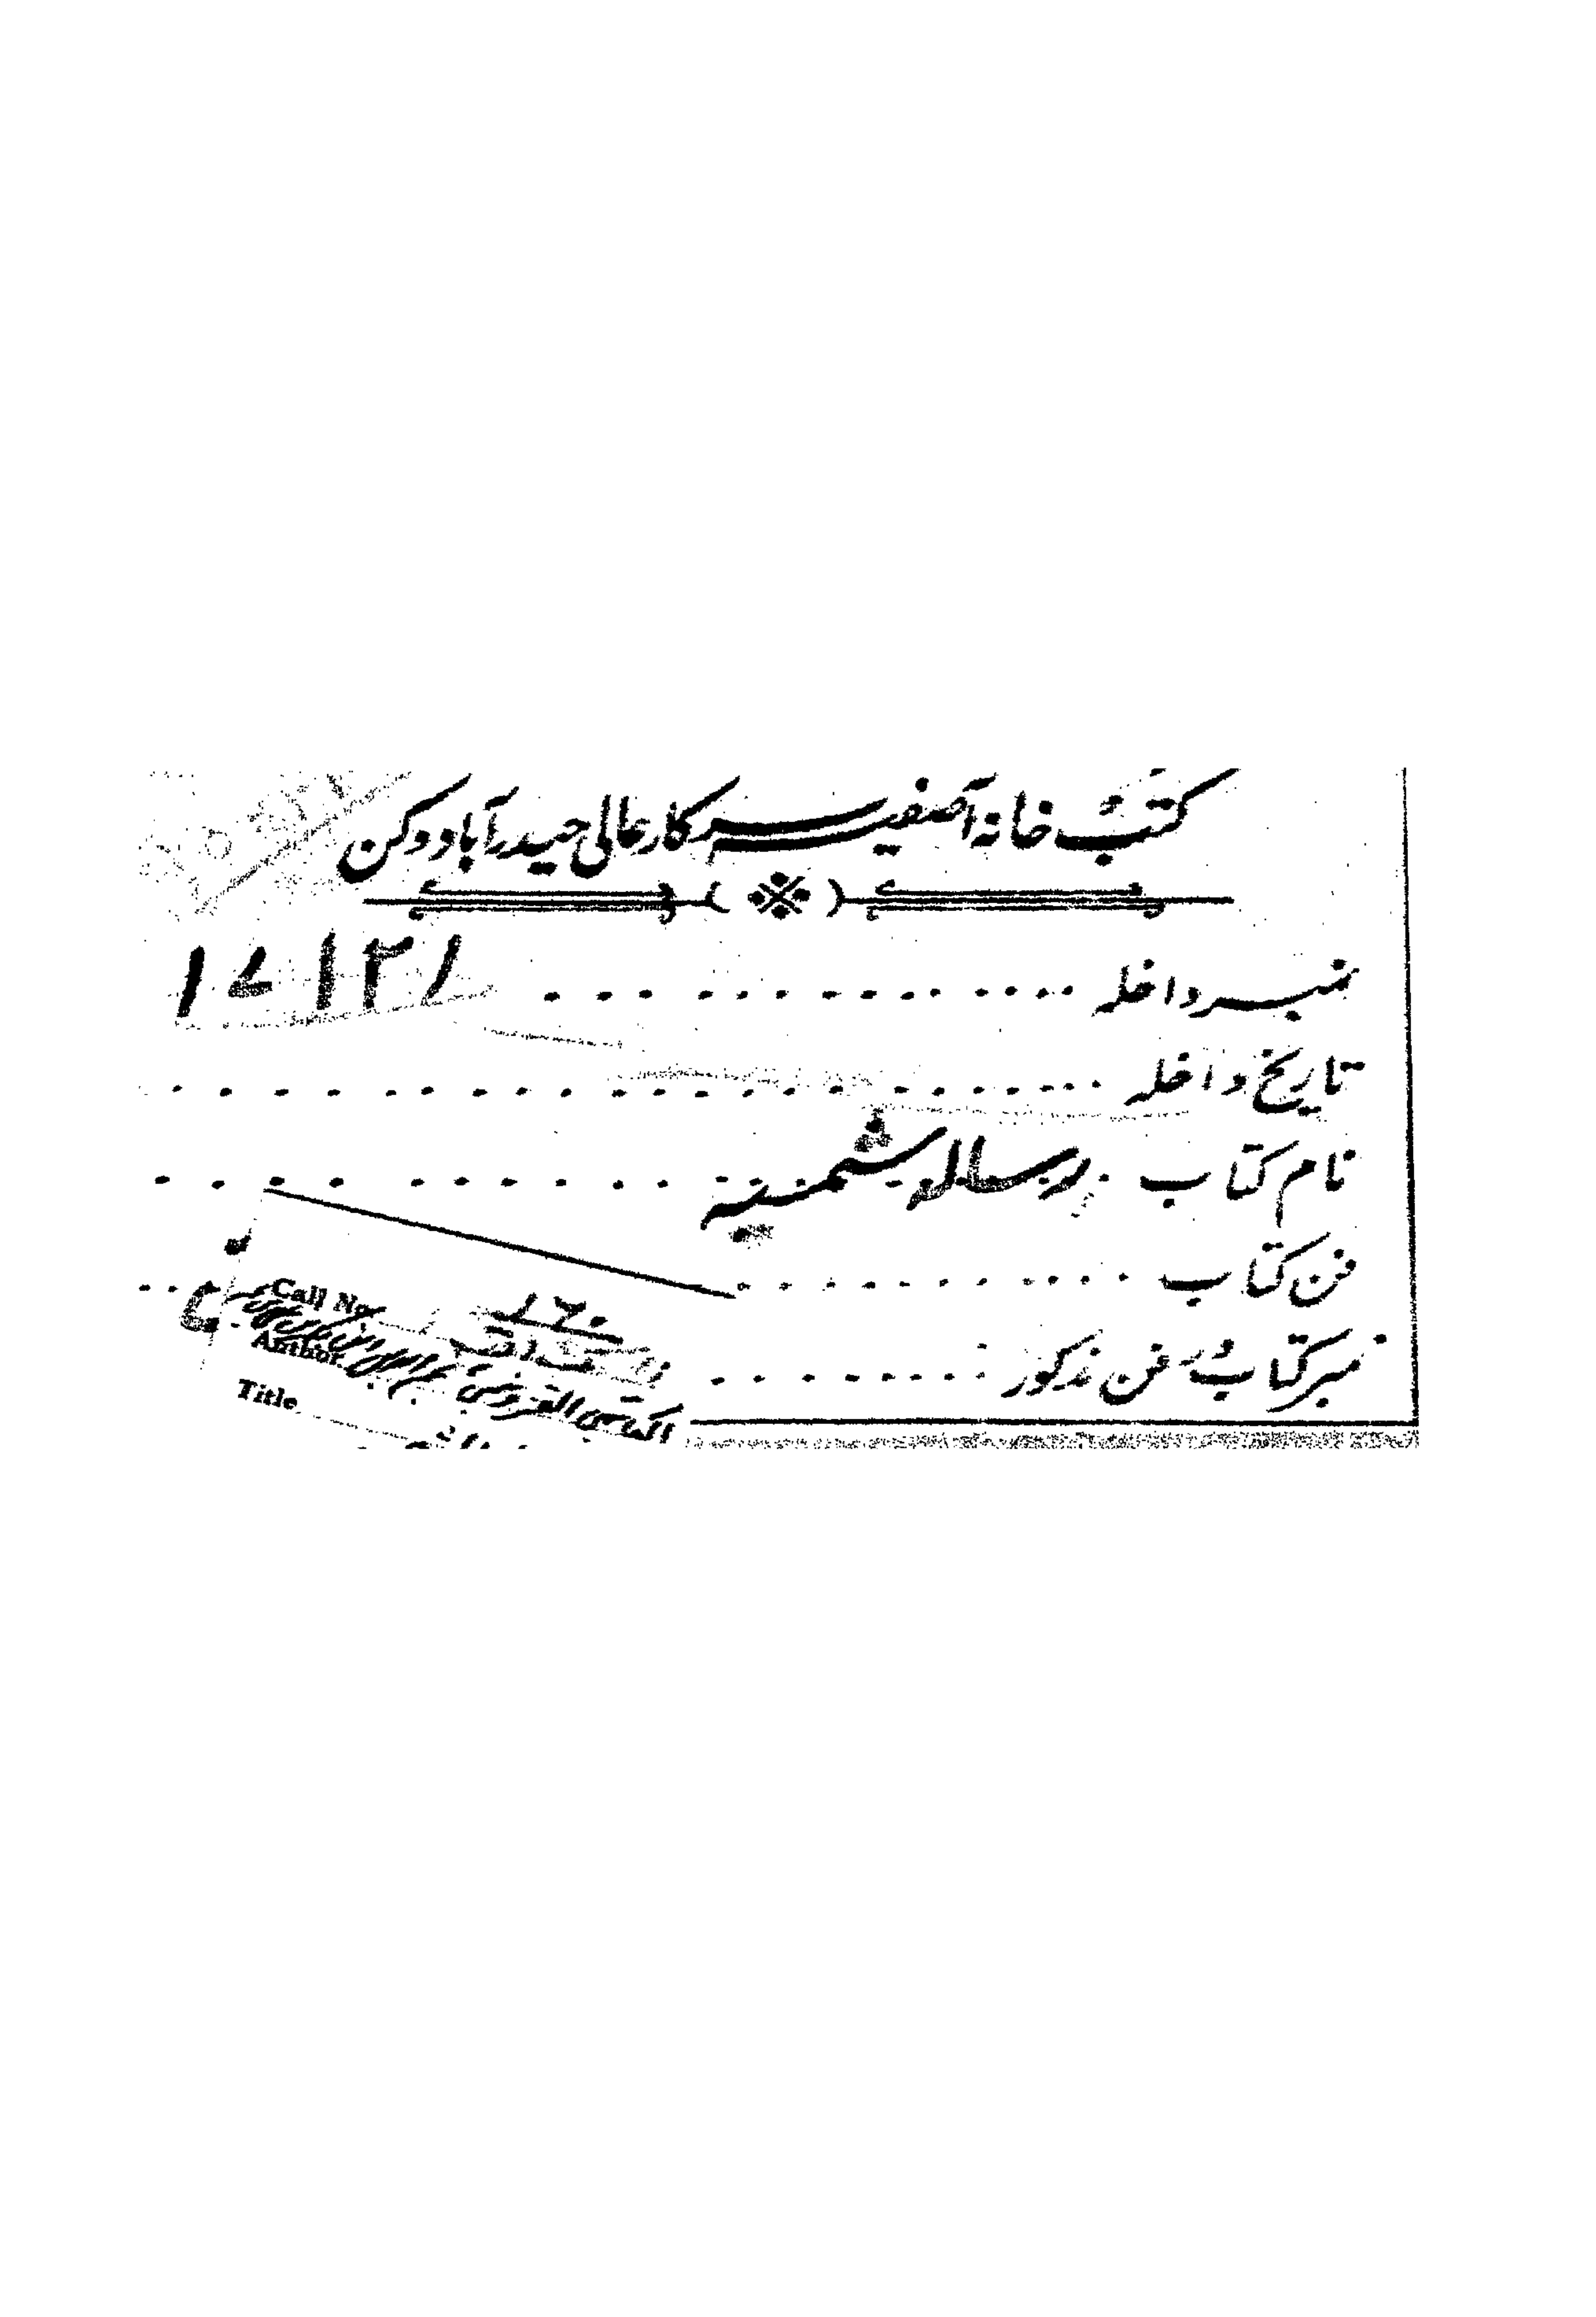 کتب خانہ آصفیہ سرکار عالی حیدرآباد دکن
نمبر داخلہ . . . . . . . . . . . . . ۱۷۱۳۱
تاریخ داخلہ . . . . . . . . . . . . . . . . . .
نام کتاب . رسالہ شمسیہ . . . . . . . . . .
فن کتاب . . . . . . . . . .
نمبر کتاب در فن مذکور . . . . . . . .
Call No. ۱۶۰
Author
الکاتبی القزوینی
Title